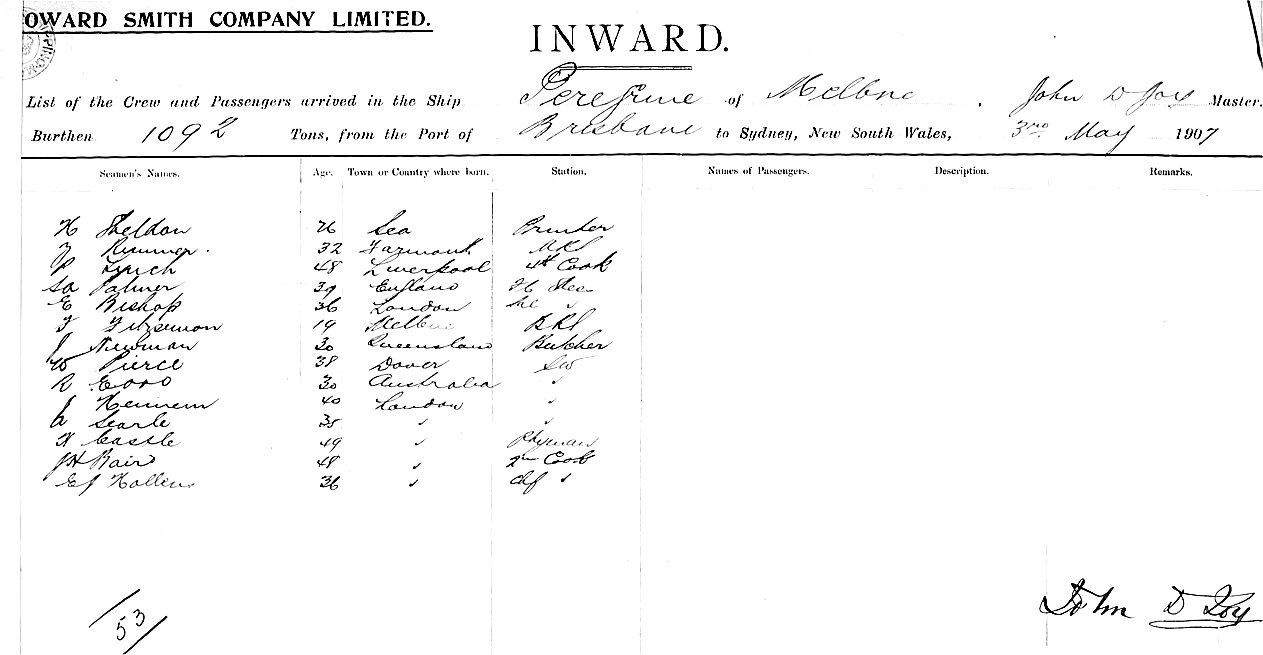 OWARD SMITH COMPANY LIMITED.
INWARD.
List of the Crew and Passengers arrived in the Ship Peregrine of Melbne . John D Joy Master.
Burthen 1092 Tons, from the Port of Brisbane to Sydney, New South Wales, 3rd May 1907
Seamen's Names. Age. Town or Country where born. Station. Names of Passengers. Description. Remarks.
H Sheldon 26 Sea Printer
32
P Lynch 48 Liverpool 4th Cook
Palmer 39 England
E Bishop 36 London
F Fitzsimon 19 Melbne
J Newman 30 Queensland Butcher
W Pierce 38 Dover
R 30 Australia "
J 40 London "
A Searle 35 " "
H Castle 49 "
JH Bair 48 " 2nd Cook
EJ Hollins 36 " Chf "
53
John D Joy